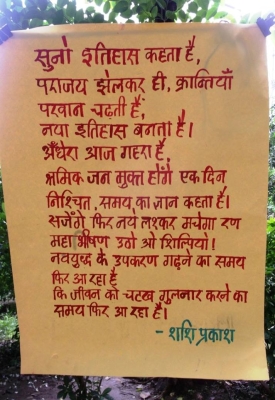 सुनो इतिहास कहता है,
पराजय झेलकर ही, क्रान्तियाँ
परवान चढ़ती हैं,
नया इतिहास बनता है।
अँधेरा आज गहरा है,
श्रमिक जन मुक्त होंगे एक दिन
निश्चित, समय का ज्ञान कहता है।
सजेंगे फिर नये लश्कर मचेगा रण
महा भीषण उठो ओ शिल्पियो!
नवयुद्ध के उपकरण गढ़ने का समय
फिर आ रहा है
कि जीवन को चटख गुलनार करने का
समय फिर आ रहा है।
- शशि प्रकाश